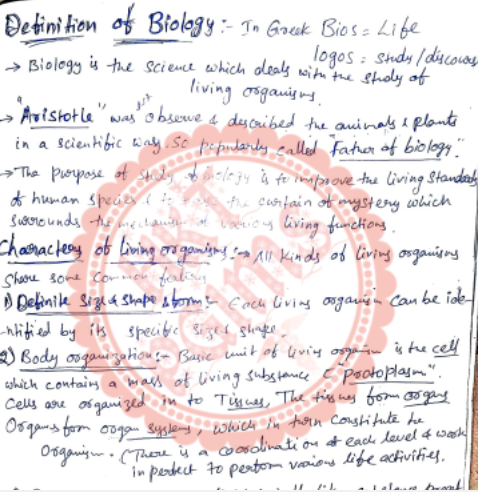 Definition of Biology :- In Greek Bios = Life
logos = study/discours
→ Biology is the science which deals with the study of
living organisms.
→ "Aristotle" was 1st observe & described the animals & plants
in a scientific way. So popularly called "Father of biology".
→ The purpose of study of biology is to improve the living standards
of human species & to the curtain of mystery which
surrounds the mechanism of various living functions.
Characters of living organisms :→ All kinds of living organisms
share some common features
1) Definite size & shape & form :- Each living organism can be ide-
-ntified by its specific size & shape.
2) Body organization :- Basic unit of living organism is the cell
which contains a mass of living substance ("Protoplasm".
Cells are organized in to Tissues, The tissues form organs
Organs form organ systems, which in turn constitute the
Organism. (There is a coordination at each level & work
in perfect to perform various life activities.